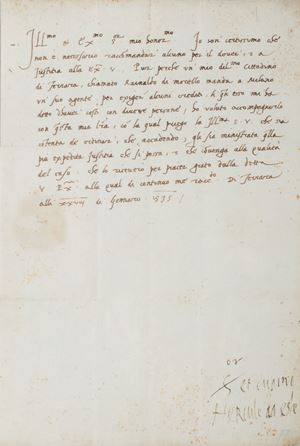 Ill^mo et Ex^mo S^r mio honor^mo Io son certissimo che
non è necessario raccomandare alcuno per il dovere, e a
Justitia alla Ex. V. Pur perche un mio dil^mo Cittadino
di Ferrara, chiamato Rainaldo da manda a Milano
un suo agente per exiger alcuni crediti, h
dotto havere cosi con diverse persone, ho voluto accompagnarlo
con q^sta mia l^ra, cō la qual priego la Ill^ma S. V. che sia
contenta de ordinare, che accadendo, gli sia ministrata q^lla
più expedita Justitia che si possa, e che convenga alla qualità
del caso, che lo riceverò per piacer grato dalla detta
V. Ex^a alla qual di continuo me racc^do Di Ferrara
alli XXVIIII di Gennaro 1535
Hercule da este